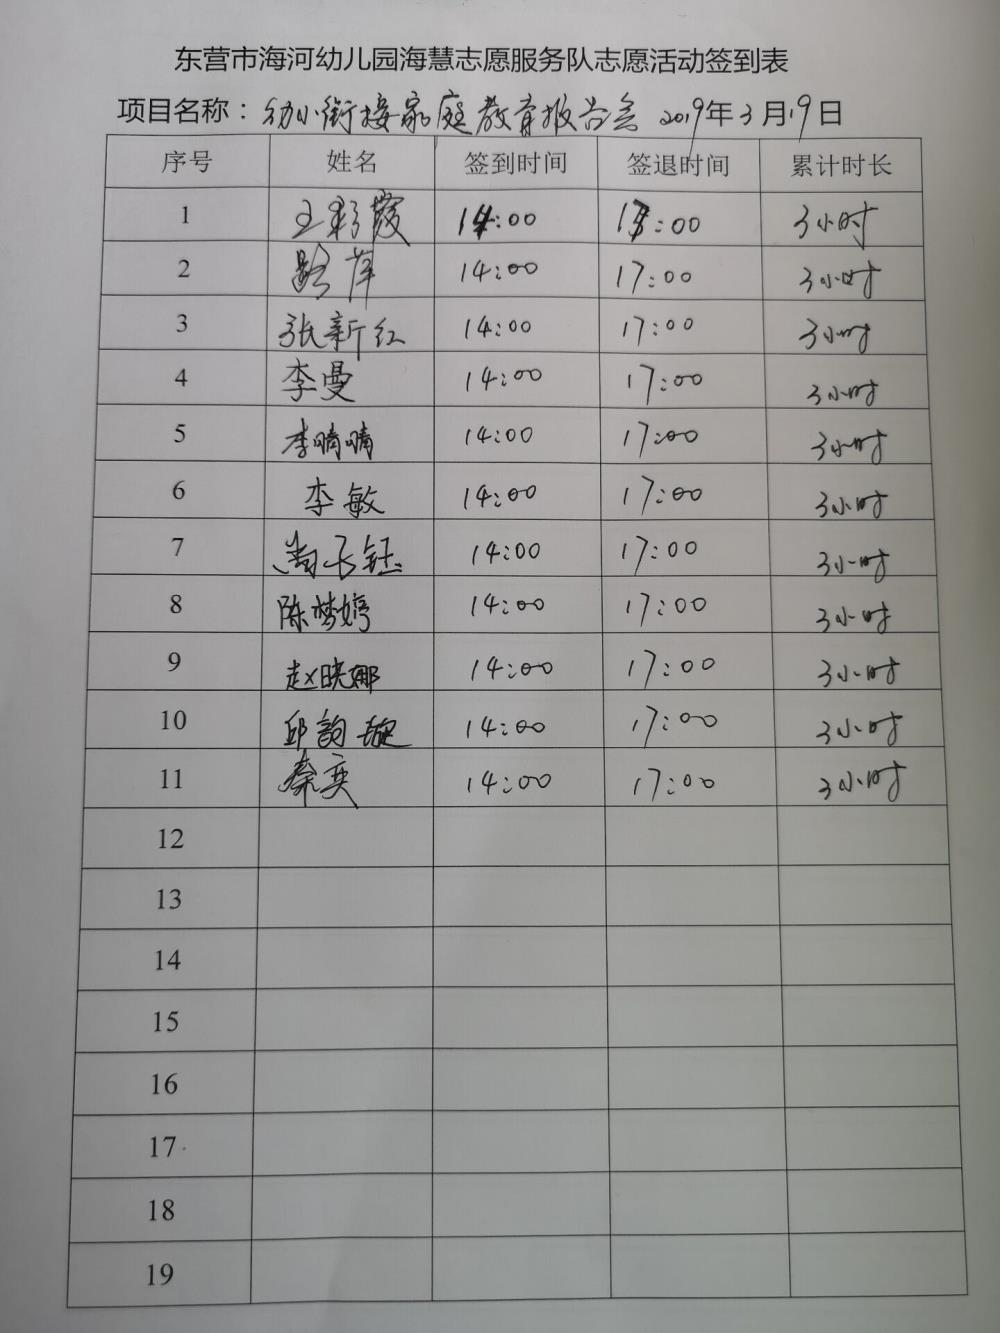 东营市海河幼儿园海慧志愿服务队志愿活动签到表
项目名称：幼小衔接家庭教育报告会 2019年3月19日
序号 姓名 签到时间 签退时间 累计时长
1 王彩霞 14:00 17:00 3小时
2 路萍 14:00 17:00 3小时
3 张新红 14:00 17:00 3小时
4 李曼 14:00 17:00 3小时
5 李晴晴 14:00 17:00 3小时
6 李敏 14:00 17:00 3小时
7 14:00 17:00 3小时
8 陈梦婷 14:00 17:00 3小时
9 赵晓娜 14:00 17:00 3小时
10 邱韵 14:00 17:00 3小时
11 秦奕 14:00 17:00 3小时
12
13
14
15
16
17
18
19